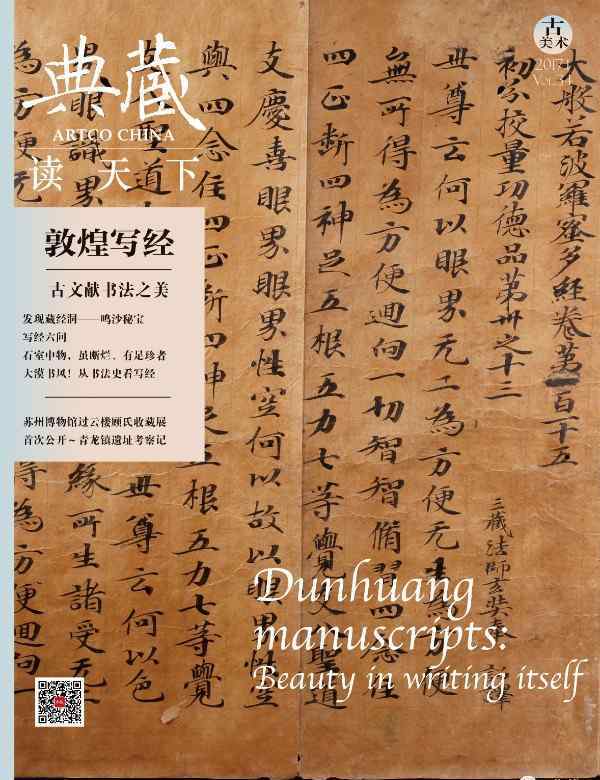 典藏
ARTCO CHINA
读天下
古
美术
2017.1
Vol.34
敦煌写经
古文献书法之美
发现藏经洞——鸣沙秘宝
写经六问
石室中物，虽断烂，有足珍者
大漠书风！从书法史看写经
苏州博物馆过云楼顾氏收藏展
首次公开~青龙镇遗址考察记
大般若波羅蜜多經卷第一百十五
初分校量功德品第卅之十三
三藏法師玄奘奉 詔譯
世尊云何以眼界无二為方便无生為方便
無所得為方便迴向一切智智脩習四念住
四正斷四神足五根五力七等覺支八聖道
支慶喜眼界眼界性空何以故以眼界性空
與四念住四正斷四神足五根五力七等覺
聖道 世尊云何以色
眼識界 緣所生諸受无
為方便无 等為方便迴向
Dunhuang
manuscripts:
Beauty in writing itself